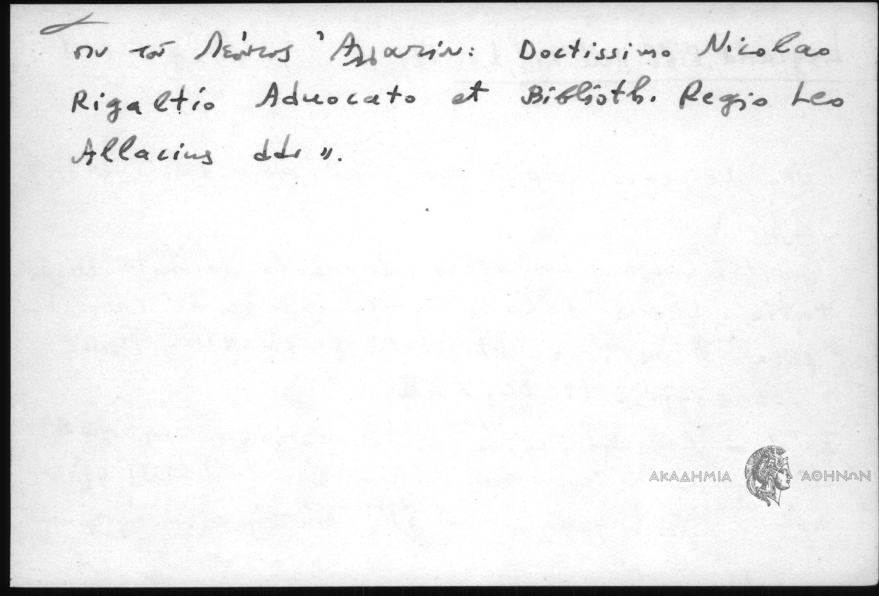 τοῦ Λέοντος Ἀλλατίου: Doctissimo Nicolao
Rigaltio Advocato et Biblioth. Regio Leo
Allacius dd ».
ΑΚΑΔΗΜΙΑ ΑΘΗΝΩΝ